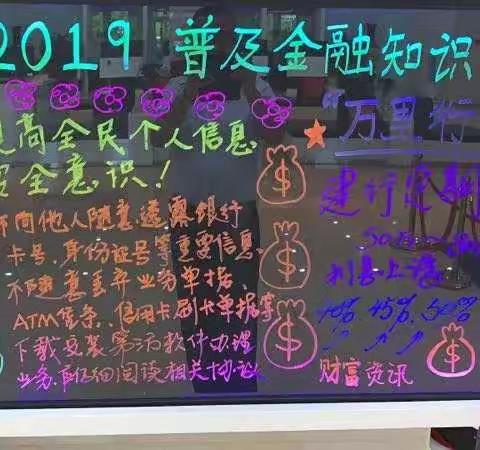 2019 普及金融知识
"万里行
提高全民个人信息
安全意识！
不向他人随意透露银行
卡号、身份证号等重要信息、
不随意丢弃业务单据、
ATM凭条、信用卡刷卡单据等
下载安装 软件办理
业务 仔细阅读相关协议
建行定期
50
利息上浮
40% 45% 50%
财富资讯